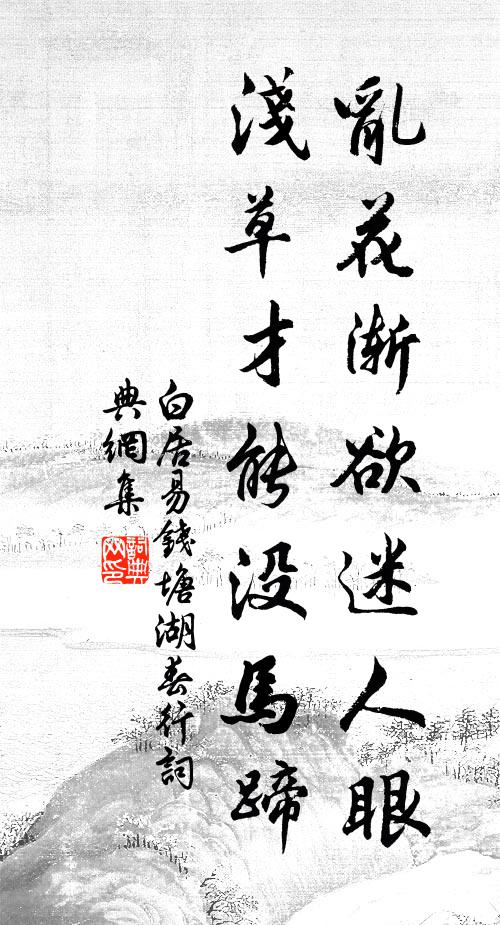 亂花渐欲迷人眼
淺草才能没馬蹄
白居易錢塘湖春行詞
典網集
詞典
网印